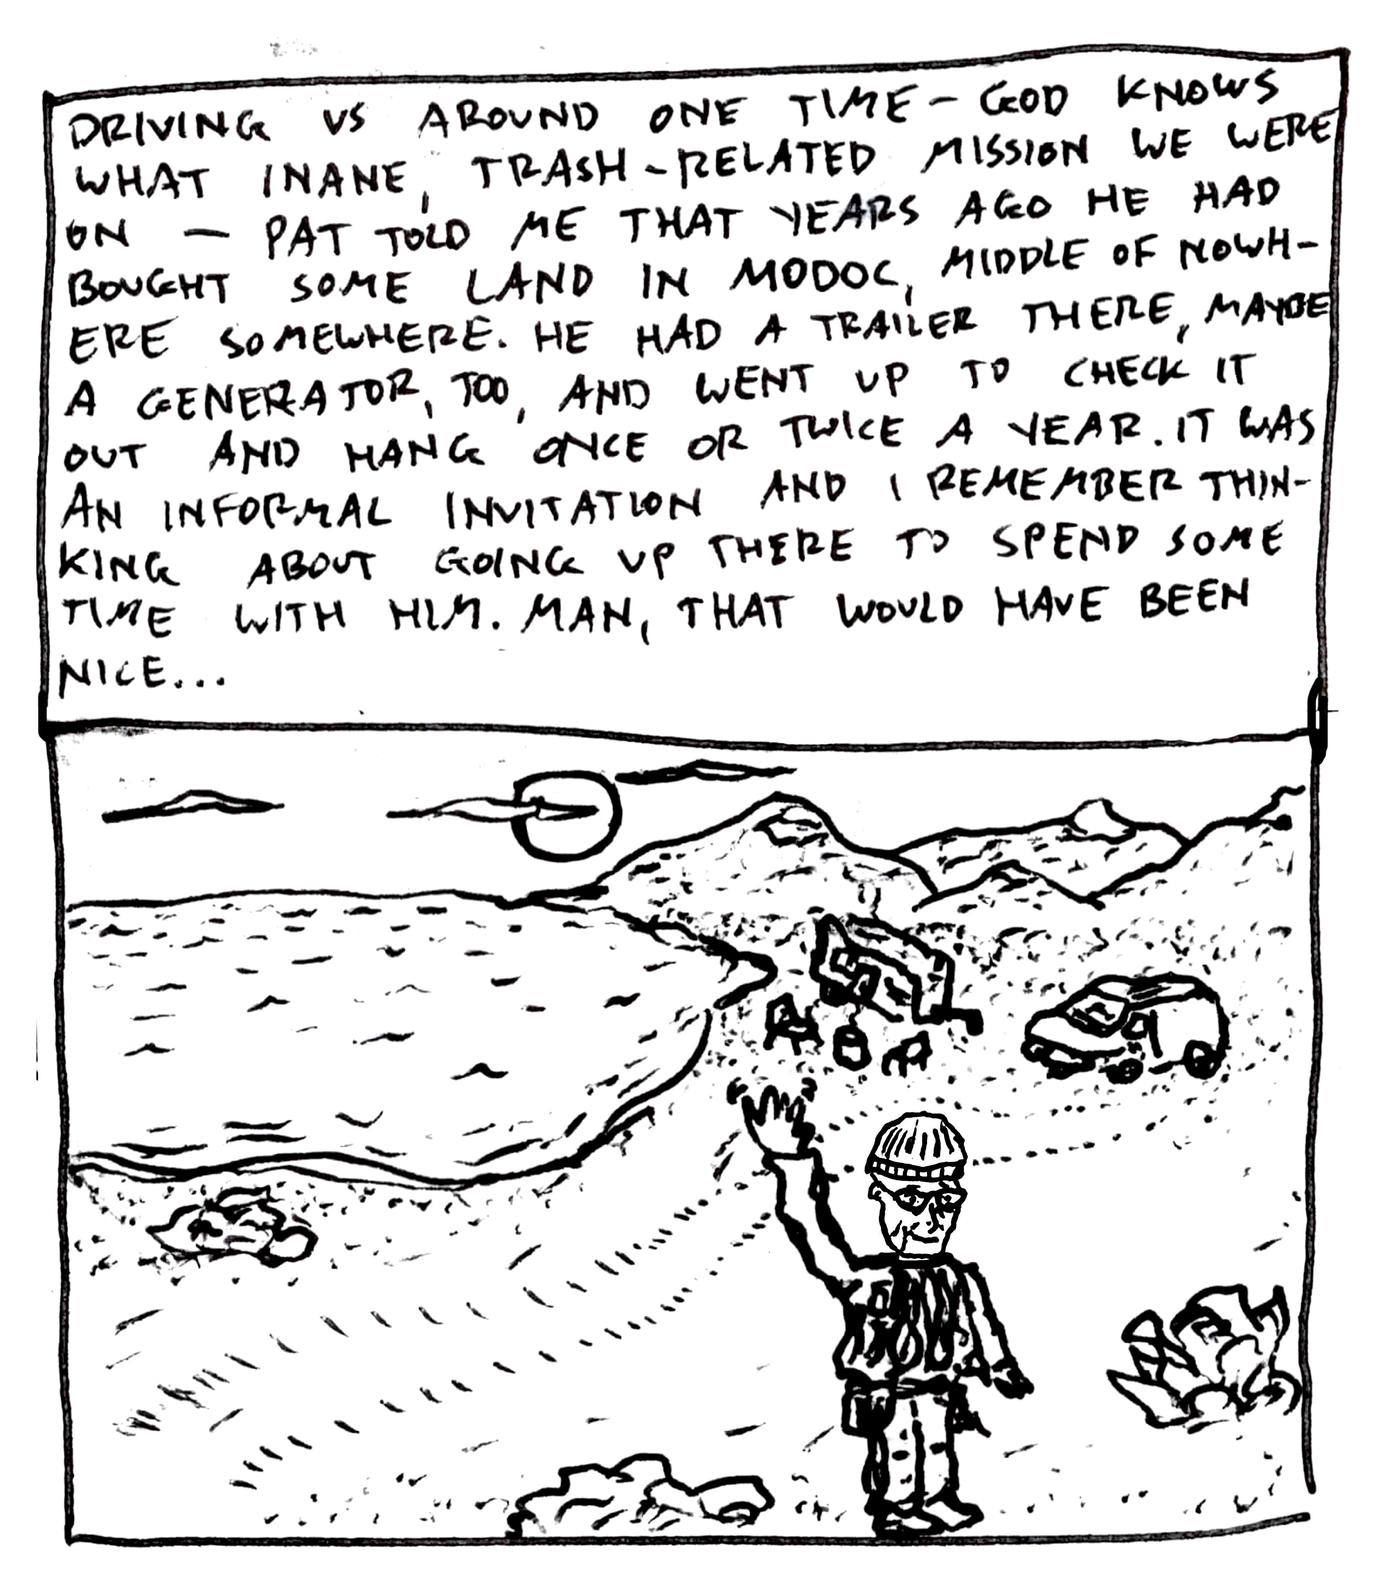 DRIVING US AROUND ONE TIME – GOD KNOWS
WHAT INANE, TRASH-RELATED MISSION WE WERE
ON — PAT TOLD ME THAT YEARS AGO HE HAD
BOUGHT SOME LAND IN MODOC, MIDDLE OF NOWH-
ERE SOMEWHERE. HE HAD A TRAILER THERE, MAYBE
A GENERATOR, TOO, AND WENT UP TO CHECK IT
OUT AND HANG ONCE OR TWICE A YEAR. IT WAS
AN INFORMAL INVITATION AND I REMEMBER THIN-
KING ABOUT GOING UP THERE TO SPEND SOME
TIME WITH HIM. MAN, THAT WOULD HAVE BEEN
NICE...